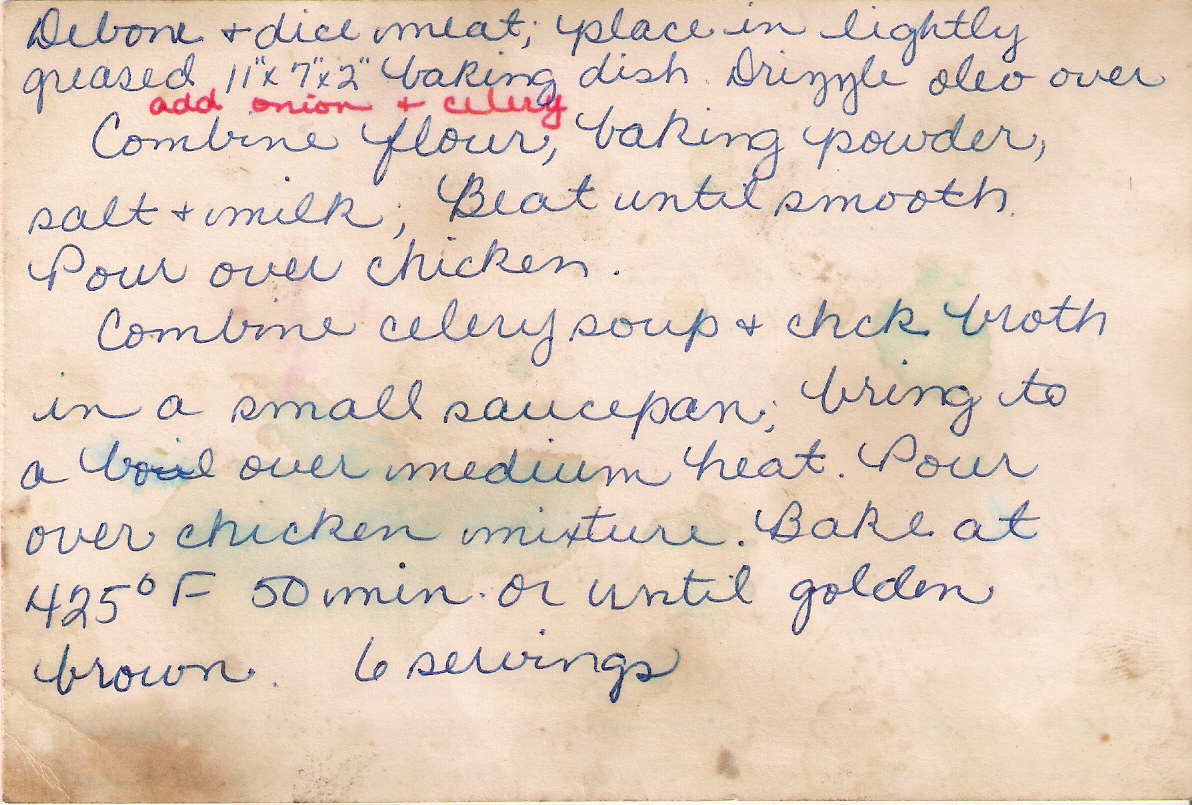 Debone + dice meat; place in lightly
greased 11"x 7"x 2" baking dish. Drizzle oleo over
add onion + celery
Combine flour, baking powder,
salt + milk; Beat until smooth.
Pour over chicken.
Combine celery soup + chck broth
in a small saucepan; bring to
a boil over medium heat. Pour
over chicken mixture. Bake at
425° F 50 min. or until golden
brown. 6 servings